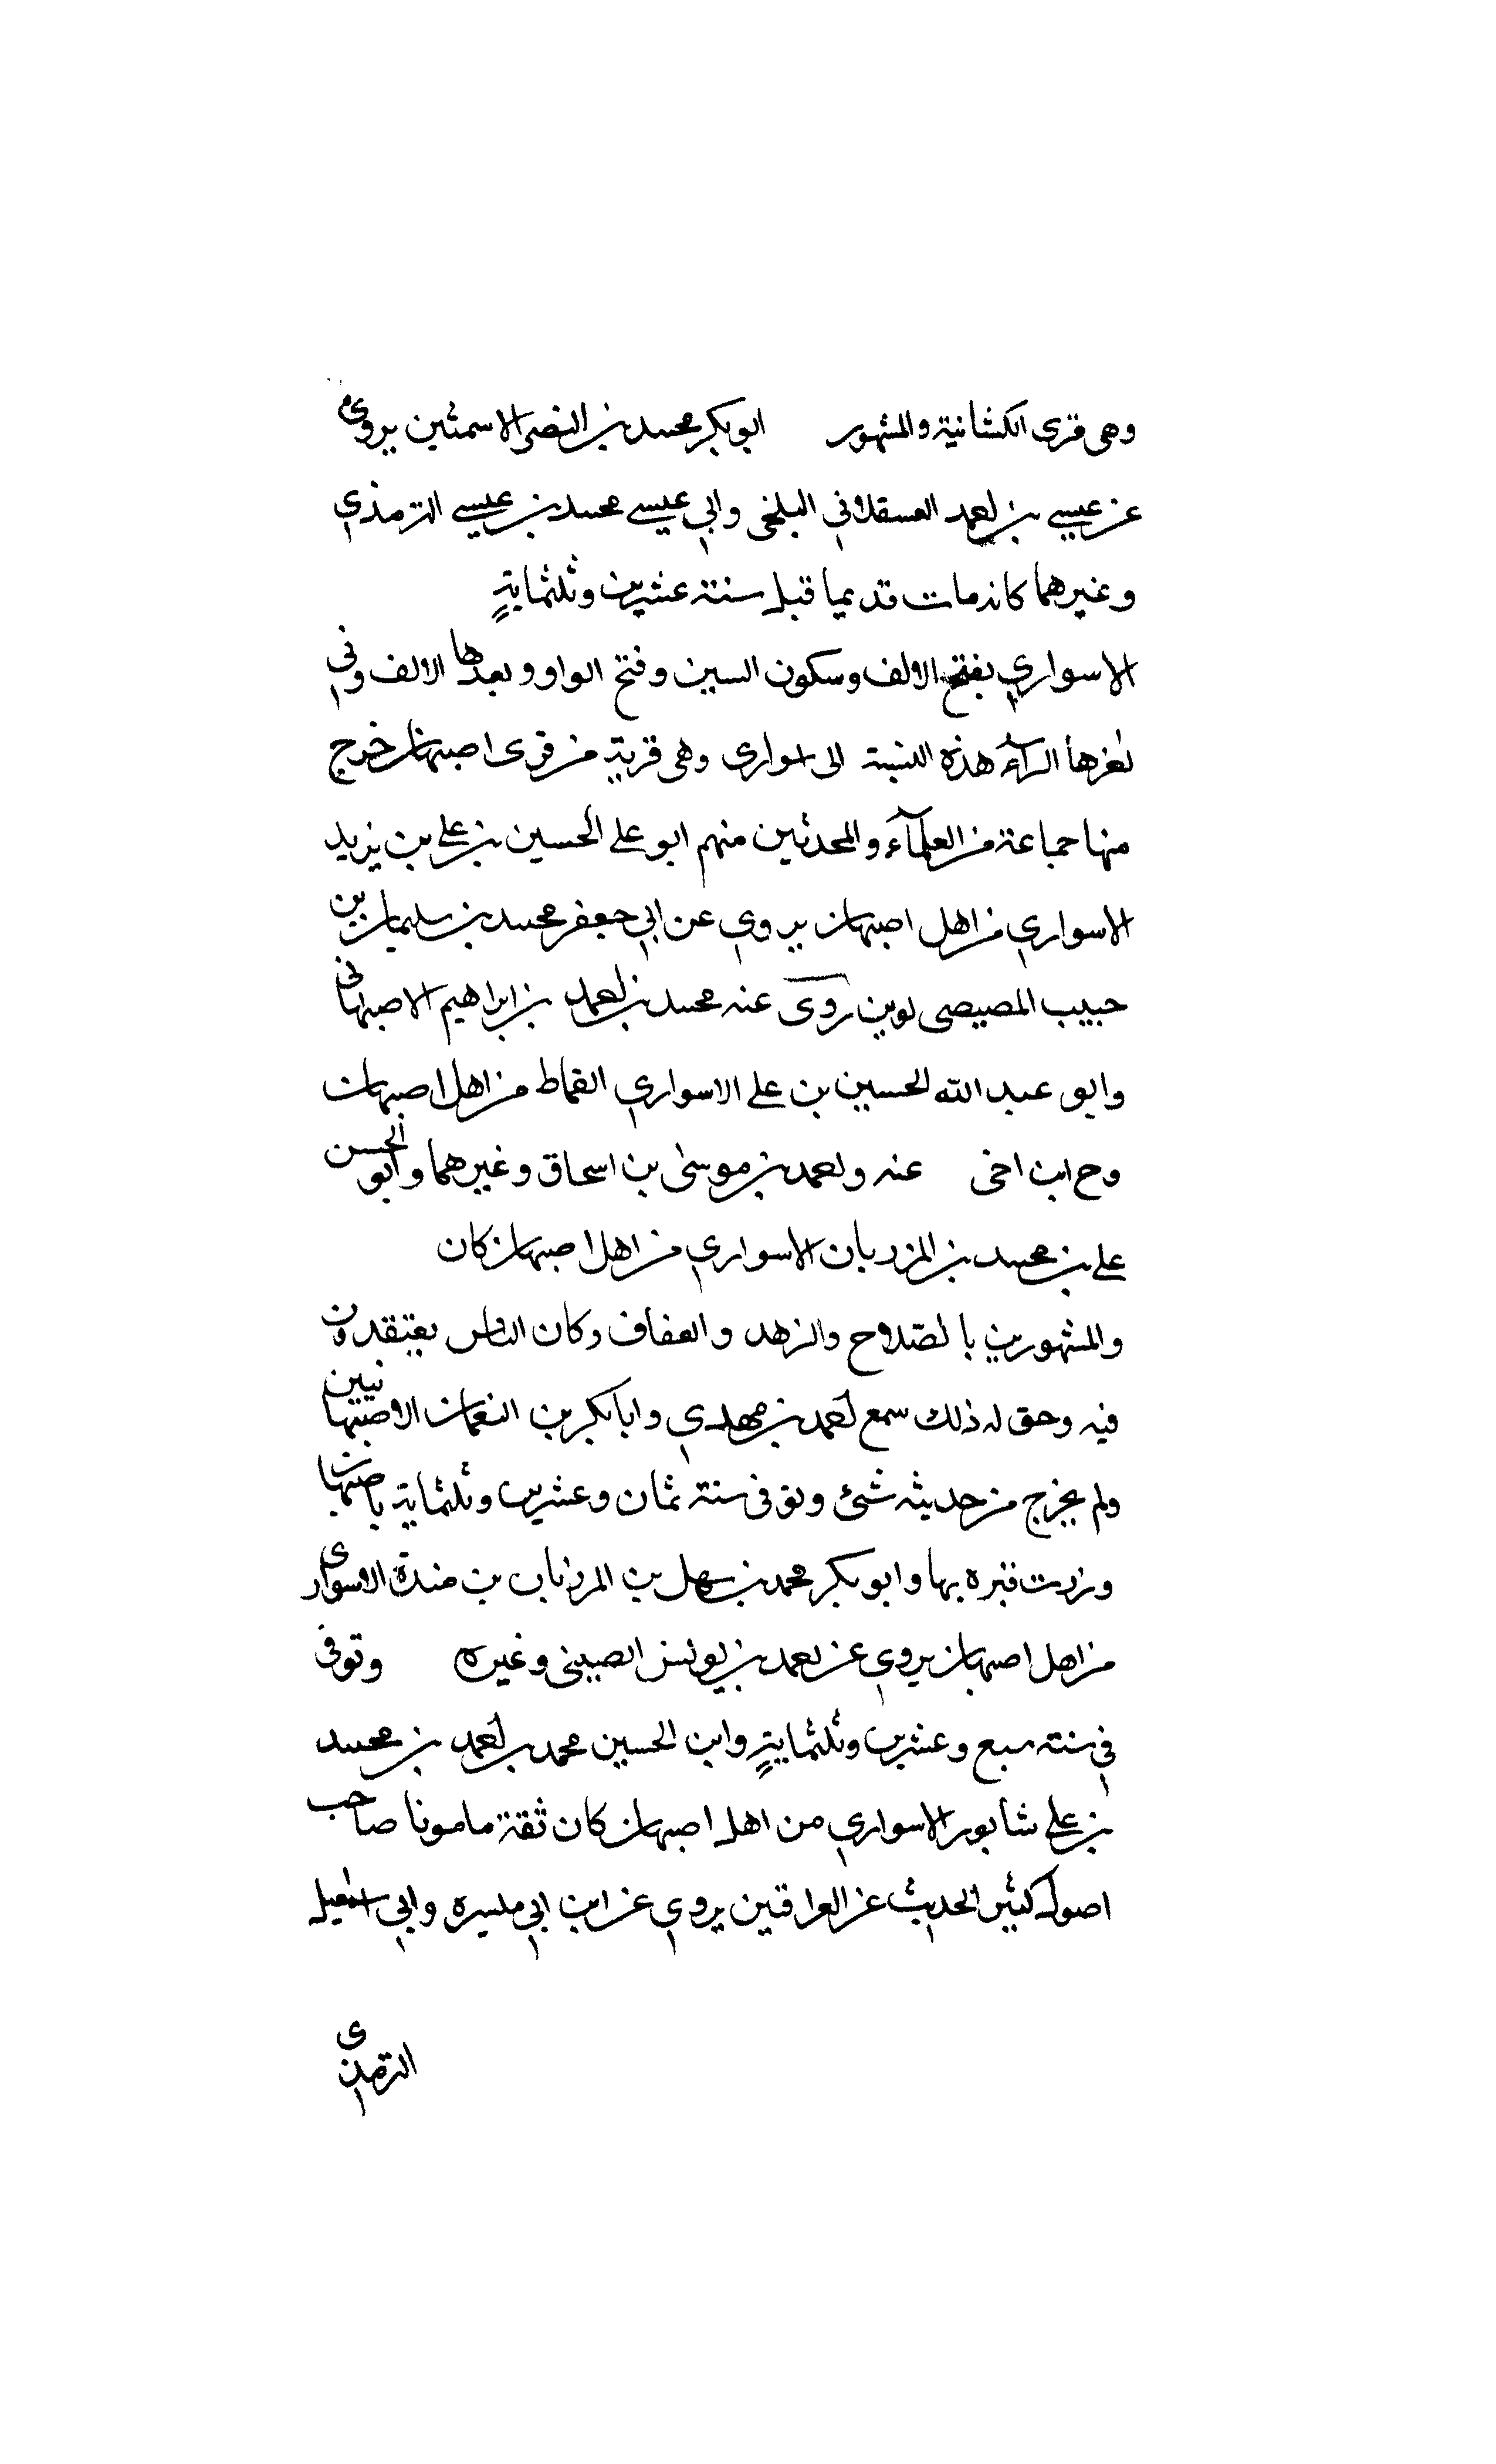 وهى قرى الكشانية والمشهور ابو بكر محمد بن النضر الاسمثين يروى
عن عيسى بن احمد العسقلاني البلخى وابي عيسى محمد بن عيسى الترمذي
وغيرهما كانه مات قديما قبل سنة عشرين وثلثماية
الاسواري بفتح الالف وسكون السين وفتح الواو وبعدها الالف وفي
اخرها الرآء هذه النسبة الى اسوارى وهى قرية من قرى اصبهان خرج
منها جماعة من العلمآء والمحدثين منهم ابو على الحسين بن على بن يزيد
الاسواري من اهل اصبهان يروي عن ابي جعفر محمد بن سليمان بن
حبيب المصيصى لوين روى عنه محمد بن احمد بن ابراهيم الاصبهانى
وابو عبد الله الحسين بن على الاسواري القماط من اهل اصبهان
وح ابن اخى عنه واحمد بن موسى بن اسحاق وغيرهما وابو الحسن
على بن محمد بن المزربان الاسواري من اهل اصبهان كان
والمشهورين بالصلاح والزهد والعفاف وكان الناس يعتقدون
فيه وحق له ذلك سمع احمد بن مهدي وابا بكر بن النعمان الاصبهانيين
ولم يخرج من حديثه شئ وتوفى سنة ثمان وعشرين وثلثماية باصبهان
وزرت قبره بها وابو بكر محمد بن سهل بن المرزبان بن مندة الاسوارى
من اهل اصبهان يروي عن احمد بن يونس الضبى وغيره وتوفى
في سنة سبع وعشرين وثلثماية وابن الحسين محمد بن احمد بن محمد
بن على شابور الاسواري من اهل اصبهان كان ثقة مامونا صاحب
اصول كثير الحديث عن العراقين يروي عن ابن ابي ميسره وابي اسمعيل
الترمذى